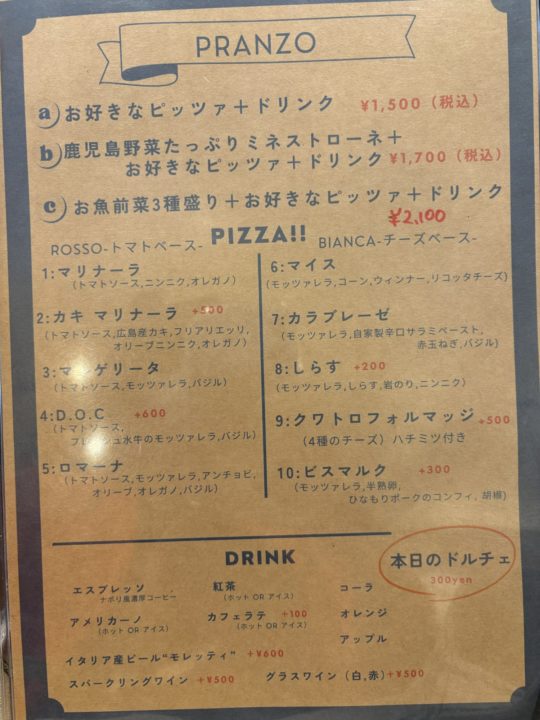 PRANZO
a お好きなピッツァ＋ドリンク ¥1,500（税込）
b 鹿児島野菜たっぷりミネストローネ＋
お好きなピッツァ＋ドリンク ¥1,700（税込）
c お魚前菜3種盛り＋お好きなピッツァ＋ドリンク
¥2,100
PIZZA!!
ROSSO-トマトベース-
1:マリナーラ
（トマトソース,ニンニク,オレガノ）
2:カキ マリナーラ +500
（トマトソース,広島産カキ,フリアリエッリ,
オリーブニンニク,オレガノ）
3:マルゲリータ
（トマトソース,モッツァレラ,バジル）
4:D.O.C +600
（トマトソース,
フレッシュ水牛のモッツァレラ,バジル）
5:ロマーナ
（トマトソース,モッツァレラ,アンチョビ,
オリーブ,オレガノ,バジル）
BIANCA-チーズベース-
6:マイス
（モッツァレラ,コーン,ウィンナー,リコッタチーズ）
7:カラブレーゼ
（モッツァレラ,自家製辛口サラミペースト,
赤玉ねぎ,バジル）
8:しらす +200
（モッツァレラ,しらす,岩のり,ニンニク）
9:クワトロフォルマッジ +500
（4種のチーズ）ハチミツ付き
10:ビスマルク +300
（モッツァレラ,半熟卵,
ひなもりポークのコンフィ, 胡椒）
DRINK
本日のドルチェ
300yen
エスプレッソ
ナポリ風濃厚コーヒー
紅茶
（ホット OR アイス）
コーラ
アメリカーノ
（ホット OR アイス）
カフェラテ +100
（ホット OR アイス）
オレンジ
アップル
イタリア産ビール“モレッティ” +¥600
スパークリングワイン +¥500
グラスワイン（白,赤）+¥500